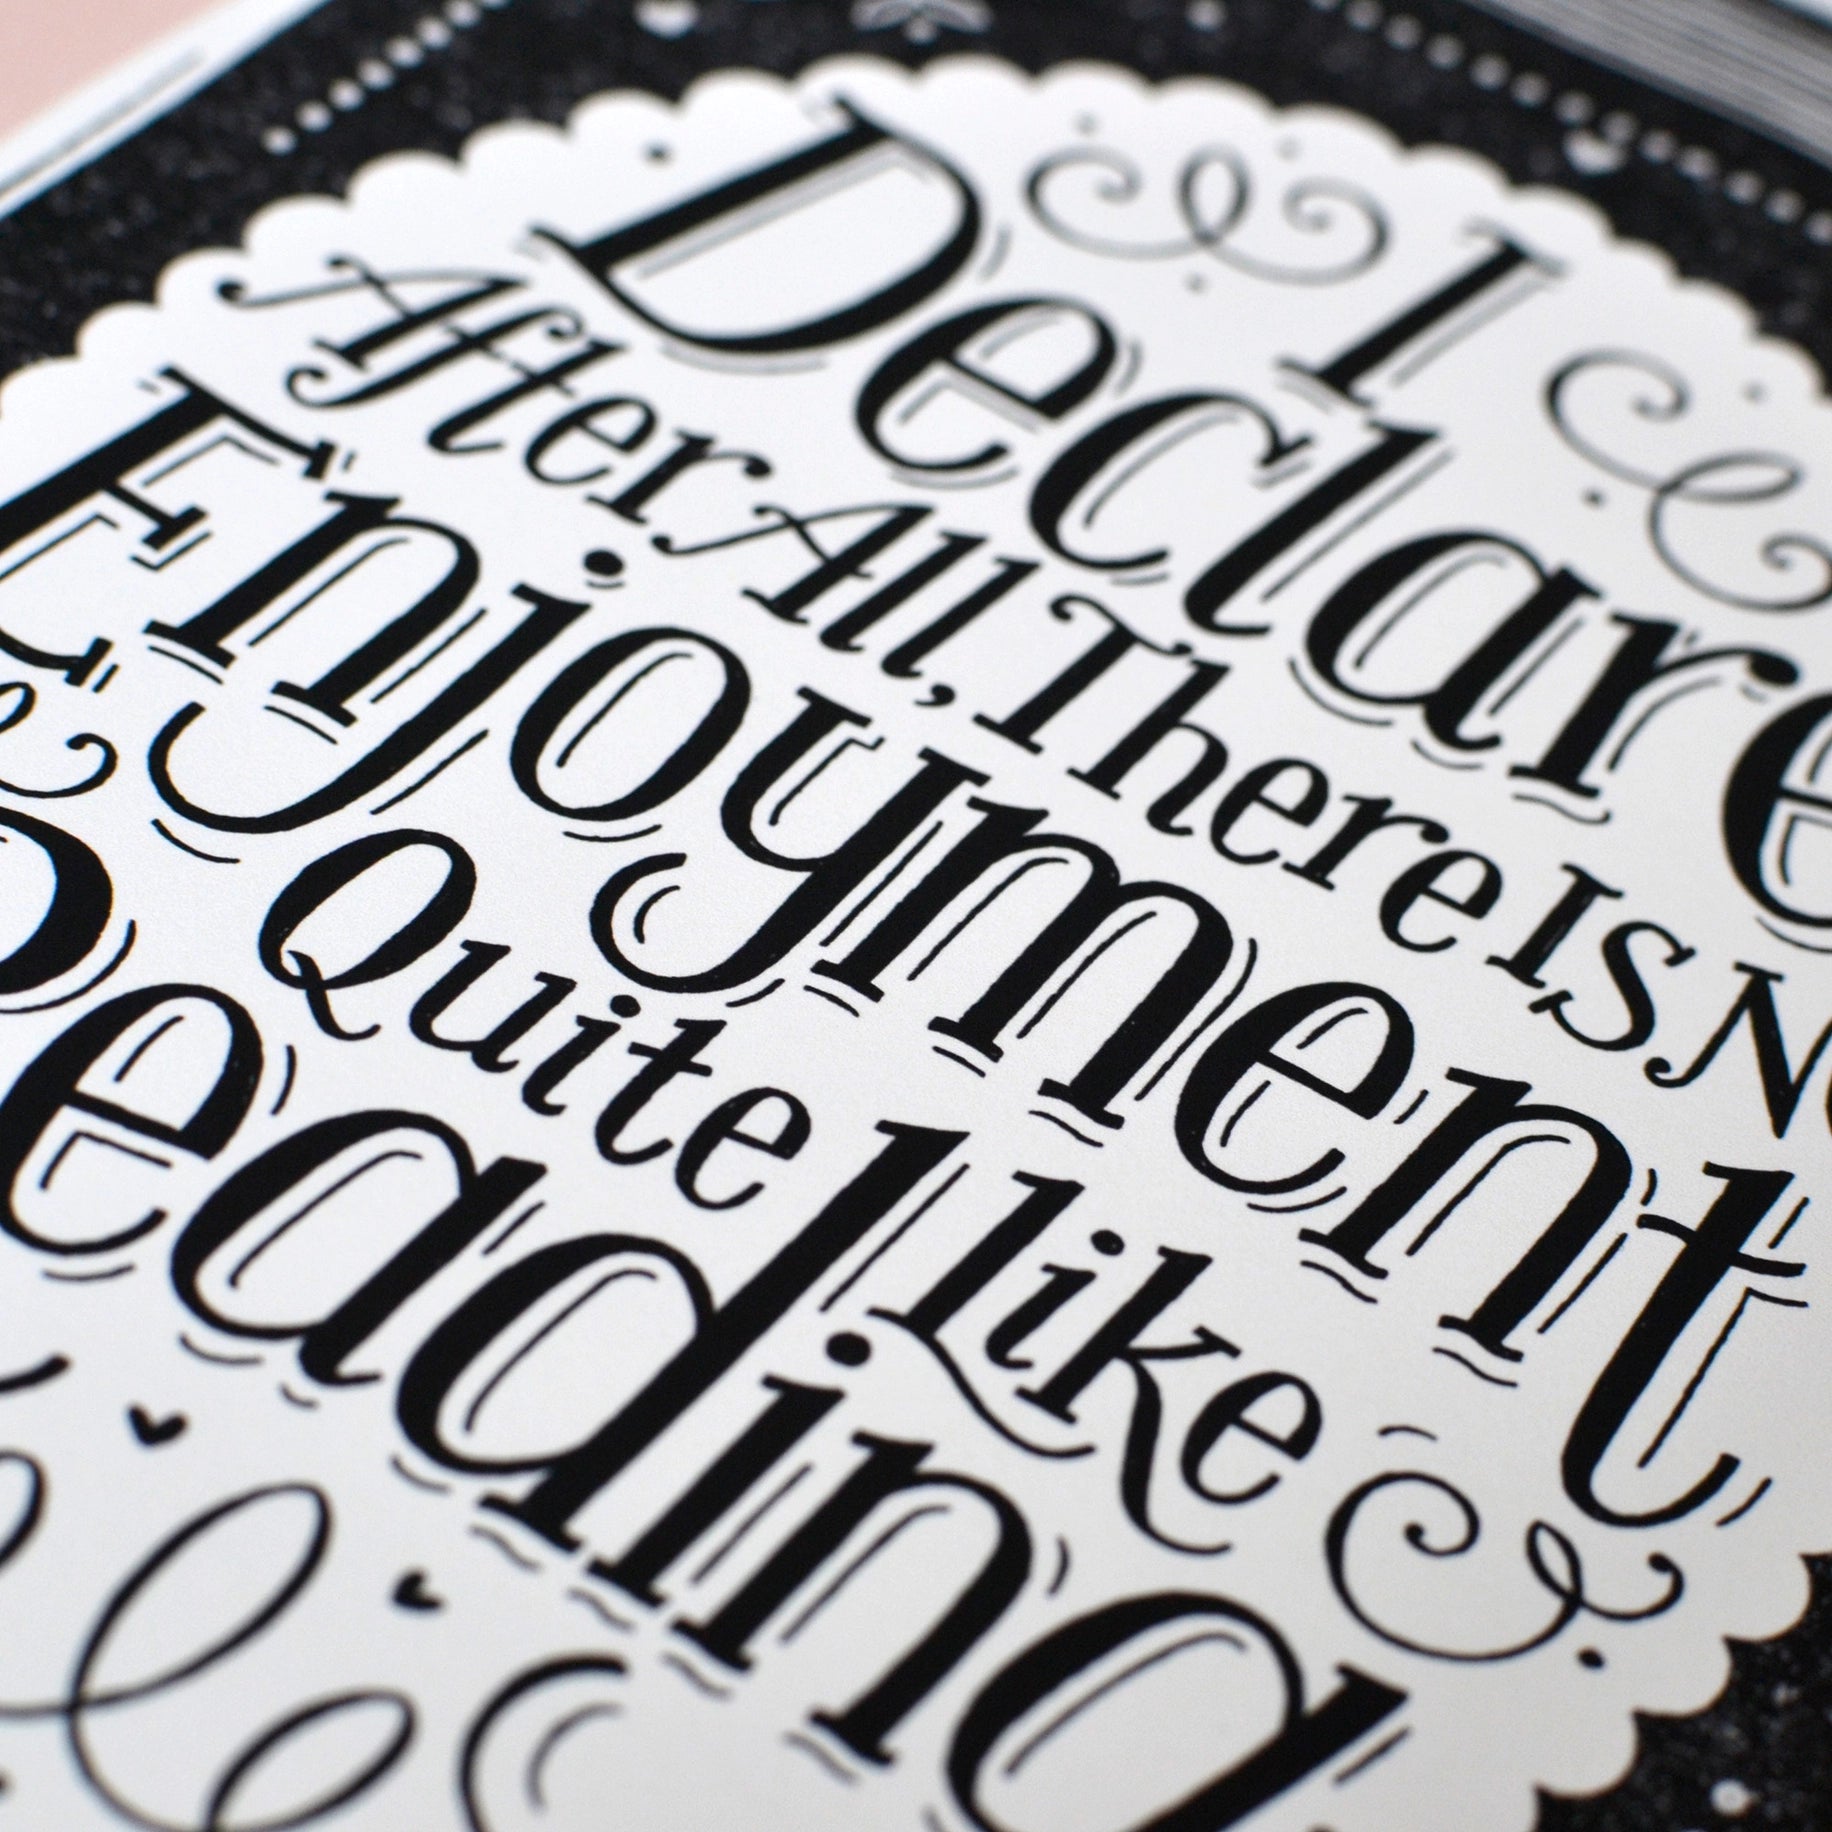 I
Declare
After All, There Is No
Enjoyment
Quite like
Reading